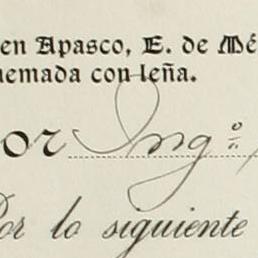 en Apasco, E. de Mé
emada con leña.
or Ing.º
Por lo siguiente